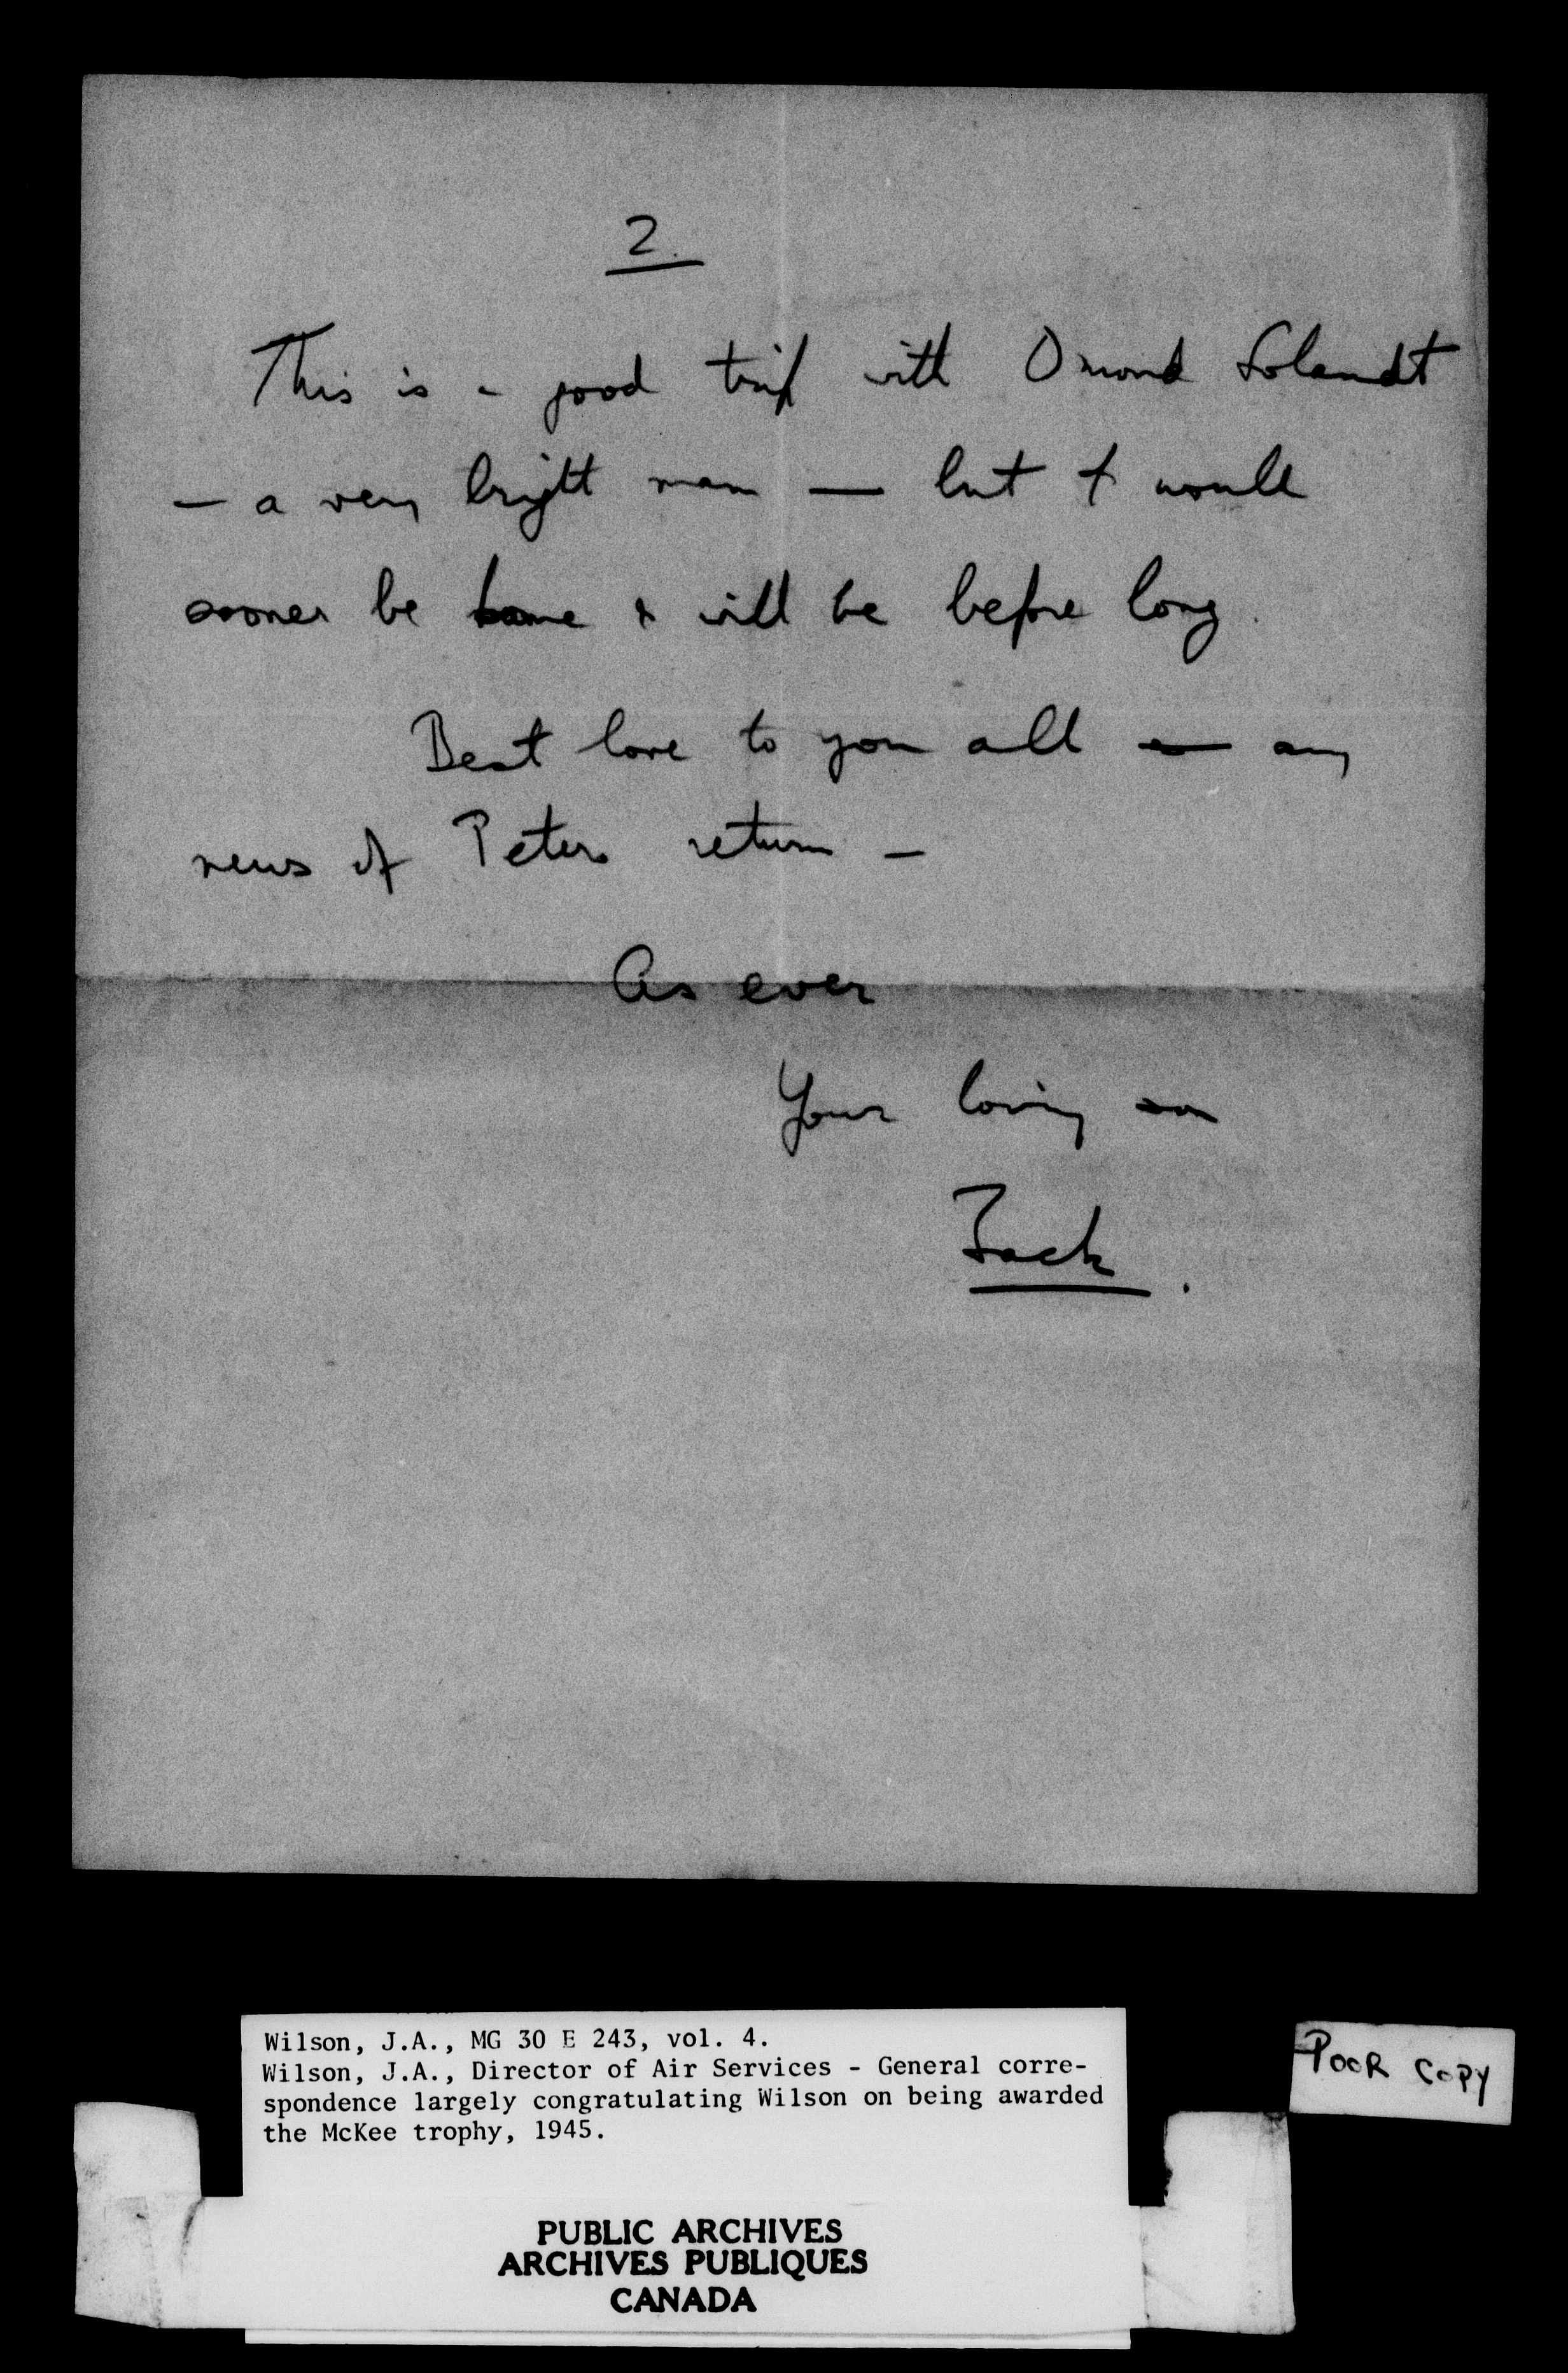 2.
This is a good trip with Omond Solandt
— a very bright man — but I would
sooner be home & will be before long.
Best love to you all — any
news of Peters return —
As ever
Your loving son
Jack.
Wilson, J.A., MG 30 E 243, vol. 4.
Wilson, J.A., Director of Air Services - General corre-
spondence largely congratulating Wilson on being awarded
the McKee trophy, 1945.
POOR COPY
PUBLIC ARCHIVES
ARCHIVES PUBLIQUES
CANADA